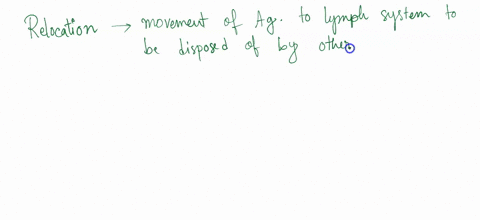 Relocation → movement of Ag. to lymph system to
be disposed of by other